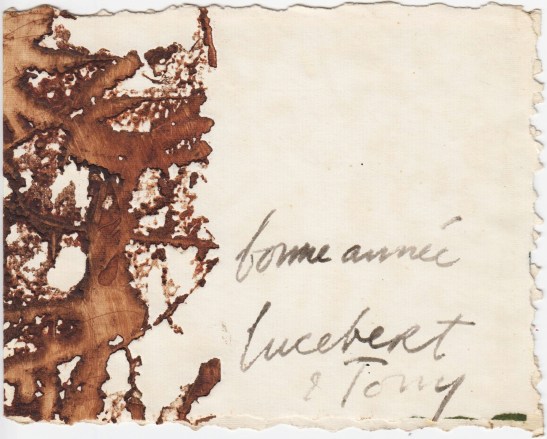 bonne année
Lucebert
& Tony